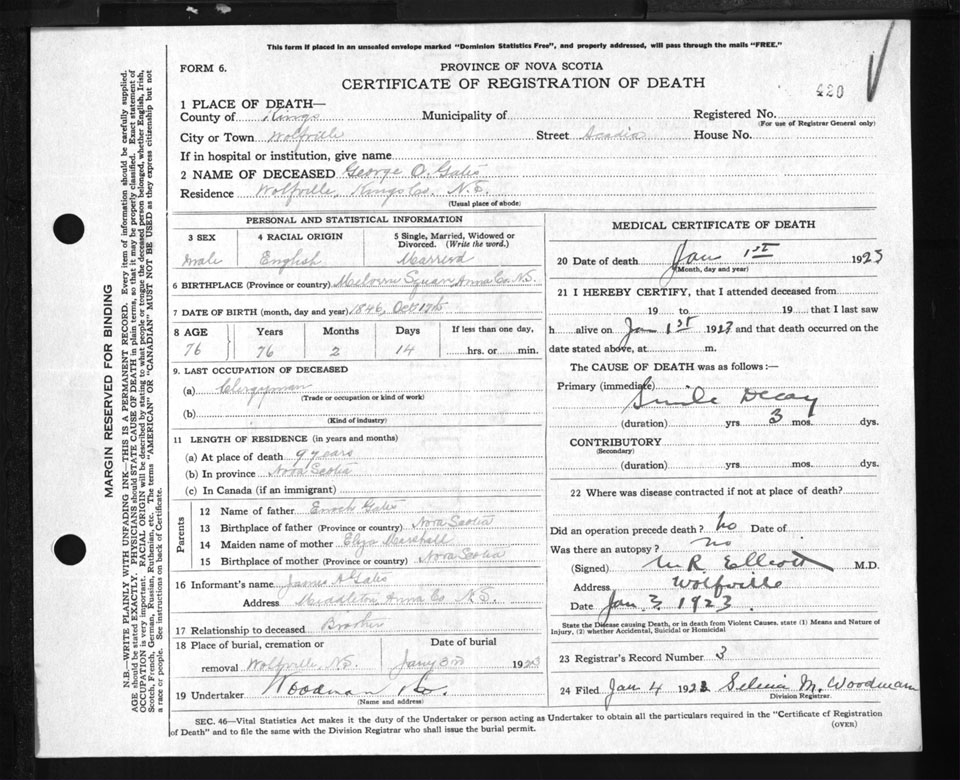 This form if placed in an unsealed envelope marked "Dominion Statistics Free", and properly addressed, will pass through the mails "FREE."
FORM 6.
PROVINCE OF NOVA SCOTIA
CERTIFICATE OF REGISTRATION OF DEATH
420
1 PLACE OF DEATH—
County of Kings Municipality of Registered No.
(For use of Registrar General only)
City or Town Wolfville Street Acadia House No.
If in hospital or institution, give name
2 NAME OF DECEASED George O. Gates
Residence Wolfville, Kings Co. N.S.
(Usual place of abode)
PERSONAL AND STATISTICAL INFORMATION
3 SEX 4 RACIAL ORIGIN 5 Single, Married, Widowed or Divorced. (Write the word.)
Male English Married
6 BIRTHPLACE (Province or country) Melvern Square Anna Co N.S.
7 DATE OF BIRTH (month, day and year) 1846, Oct 17th
8 AGE Years Months Days If less than one day,
76 76 2 14 hrs. or min.
9. LAST OCCUPATION OF DECEASED
(a) Clergyman
(Trade or occupation or kind of work)
(b)
(Kind of industry)
11 LENGTH OF RESIDENCE (in years and months)
(a) At place of death 9 years
(b) In province Nova Scotia
(c) In Canada (if an immigrant)
Parents
12 Name of father Enoch Gates
13 Birthplace of father (Province or country) Nova Scotia
14 Maiden name of mother Eliza Marshall
15 Birthplace of mother (Province or country) Nova Scotia
16 Informant's name James A Gates
Address Middleton Anna Co N.S.
17 Relationship to deceased Brother
18 Place of burial, cremation or removal Wolfville, N.S.
Date of burial Jany 3rd 1923
19 Undertaker Woodman & Co.
(Name and address)
MEDICAL CERTIFICATE OF DEATH
20 Date of death Jan 1st 1923
(Month, day and year)
21 I HEREBY CERTIFY, that I attended deceased from
19 to 19 that I last saw
h alive on Jan 1st 1923 and that death occurred on the
date stated above, at m.
The CAUSE OF DEATH was as follows:—
Primary (immediate)
Senile Decay
(duration) yrs 3 mos. dys.
CONTRIBUTORY
(Secondary)
(duration) yrs. mos. dys.
22 Where was disease contracted if not at place of death?
Did an operation precede death? No Date of
Was there an autopsy? no
(Signed) M R Elliott M.D.
Address Wolfville
Date Jan 3, 1923.
State the Disease causing Death, or in death from Violent Causes, state (1) Means and Nature of
Injury, (2) whether Accidental, Suicidal or Homicidal
23 Registrar's Record Number 3
24 Filed Jan 4 1923 Selina M. Woodman
Division Registrar.
SEC. 46—Vital Statistics Act makes it the duty of the Undertaker or person acting as Undertaker to obtain all the particulars required in the "Certificate of Registration
of Death" and to file the same with the Division Registrar who shall issue the burial permit.
(OVER)
MARGIN RESERVED FOR BINDING
N.B.—WRITE PLAINLY WITH UNFADING INK—THIS IS A PERMANENT RECORD. Every item of information should be carefully supplied.
AGE should be stated EXACTLY. PHYSICIANS should STATE CAUSE OF DEATH in plain terms, so that it may be properly classified. Exact statement of
OCCUPATION is very important. RACIAL ORIGIN will be described by stating to what people or tongue the deceased person belonged, whether English, Irish,
Scotch, French, German, Russian, Ruthenian, etc. The terms "AMERICAN" OR "CANADIAN" MUST NOT BE USED as they express citizenship but not
a race or people. See instructions on back of Certificate.